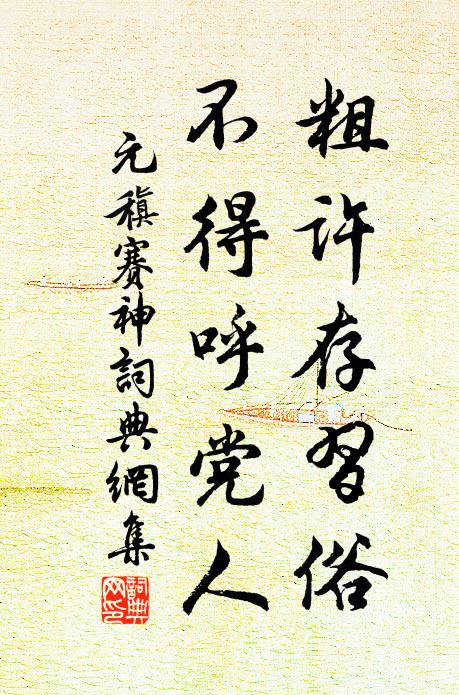 粗许存習俗
不得呼党人
元稹賽神詞典網集
詞典網印